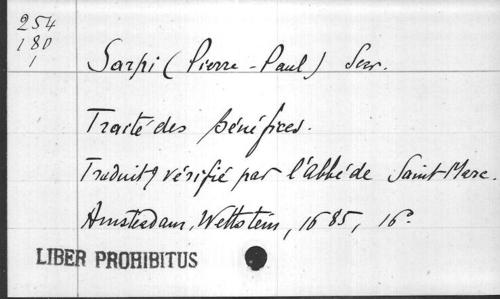 254
180
1
Sarpi (Pierre-Paul) Serv.
Traité des Bénéfices.
Traduit & vérifié par l'abbé de Saint-Marc.
Amsterdam, Wettstein, 1685, 16°
LIBER PROHIBITUS